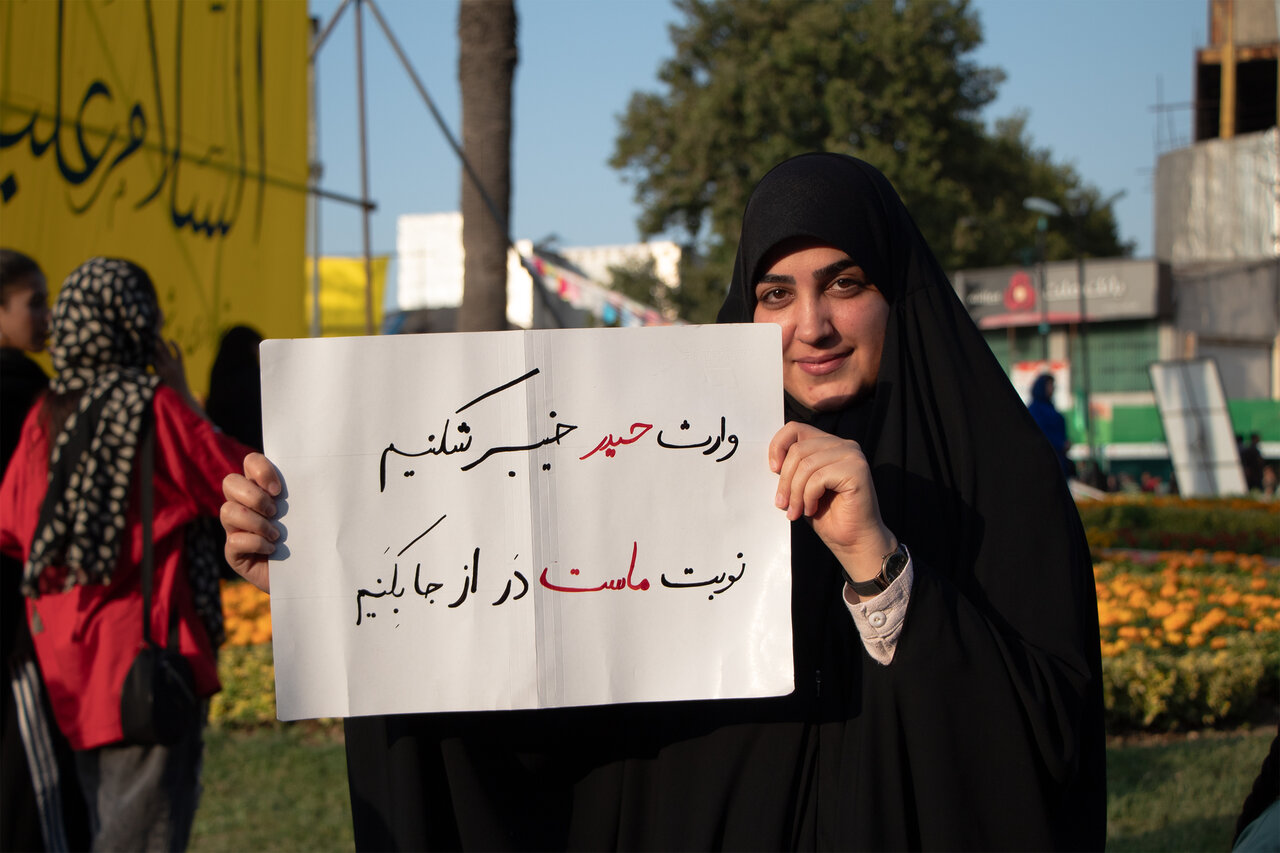 السلام علی
وارث حیدر خیبر شکنیم
نوبت ماست دَر از جا بِکَنیم